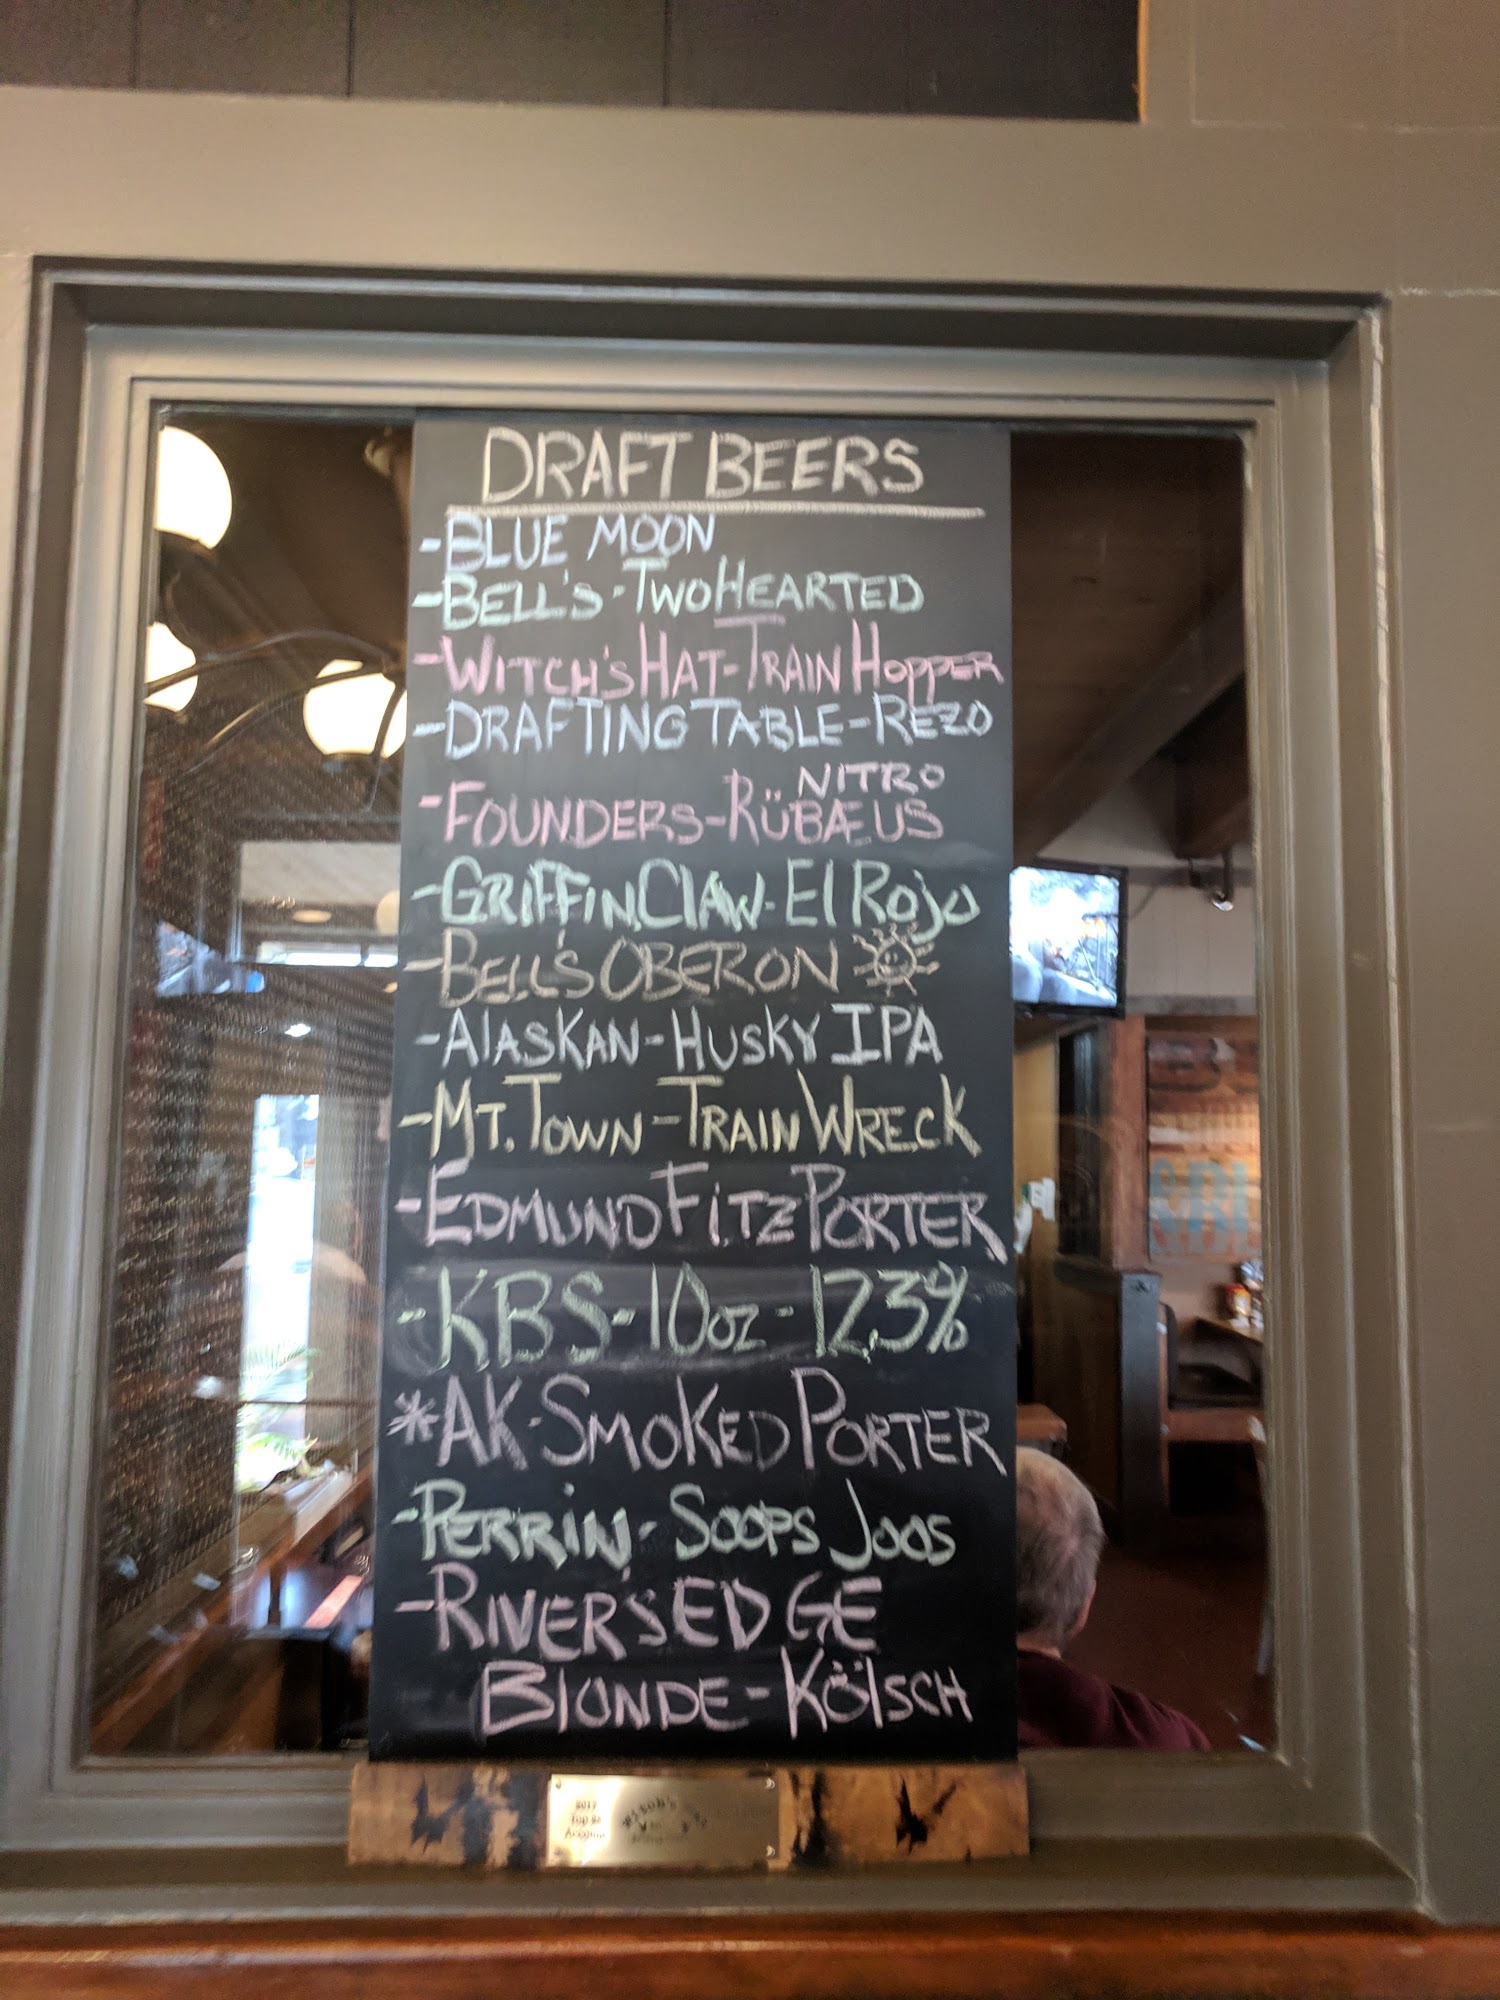 DRAFT BEERS
-BLUE MOON
-BELL'S-TWOHEARTED
-WITCH'S HAT-TRAIN HOPPER
-DRAFTING TABLE-REZO
NITRO
-FOUNDERS-RÜBÆUS
-GRIFFIN CLAW-El ROJO
-BELL'S OBERON
-ALASKAN-HUSKY IPA
-MT. TOWN-TRAIN WRECK
-EDMUND FITZ PORTER
-KBS-10oz-12.3%
*AK-SMOKED PORTER
-PERRIN-SOOPS JOOS
-RIVERS EDGE
BLONDE-KÖLSCH
2017
Top 25
Account
Witch's
&BL